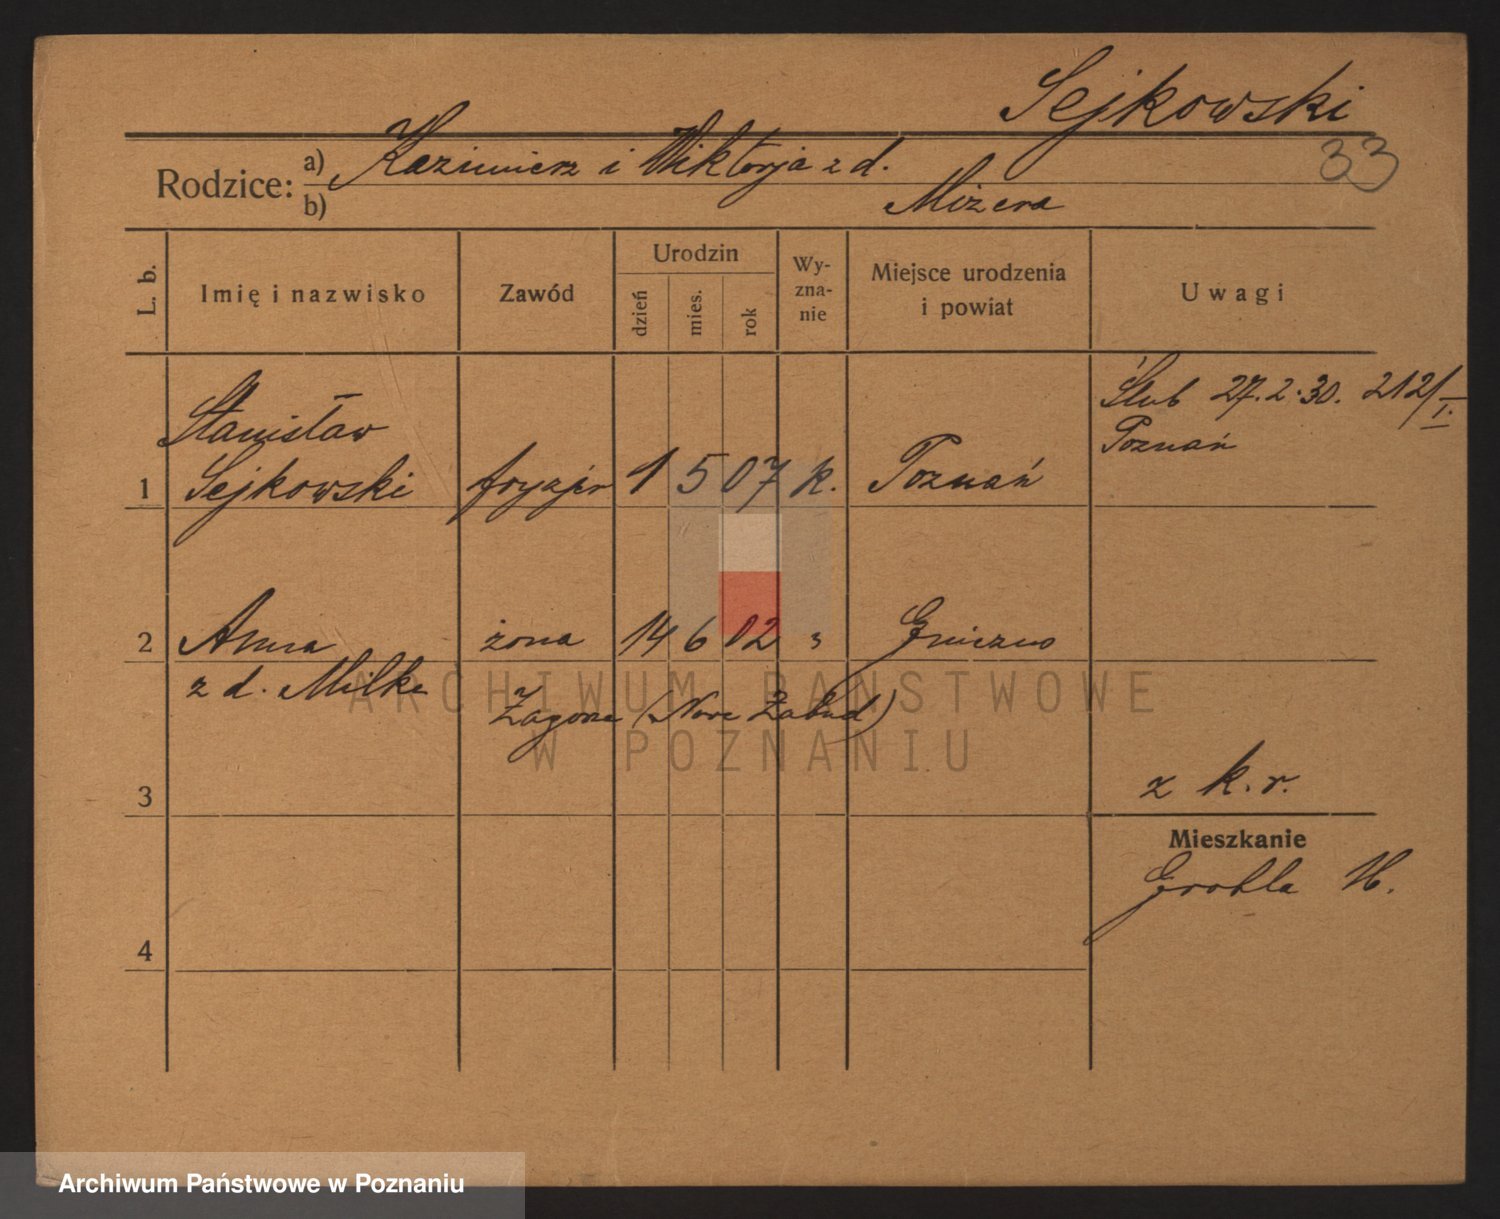 Sejkowski
33
Rodzice: a) Kazimierz i Wiktorja z d.
b) Mizera
L. b.
Imię i nazwisko
Zawód
Urodzin
dzień
mies.
rok
Wy-
zna-
nie
Miejsce urodzenia
i powiat
Uwagi
Ślub 27.2.30. 212/I.
Poznań
Stanisław
1 Sejkowski fryzjer 1 5 07 k. Poznań
2 Anna żona 14 6 02 " Gniezno
z d. Milke
Żagorze (Nowe Zabud)
3
z k.r.
Mieszkanie
Grobla
4
ARCHIWUM PAŃSTWOWE
W POZNANIU
Archiwum Państwowe w Poznaniu